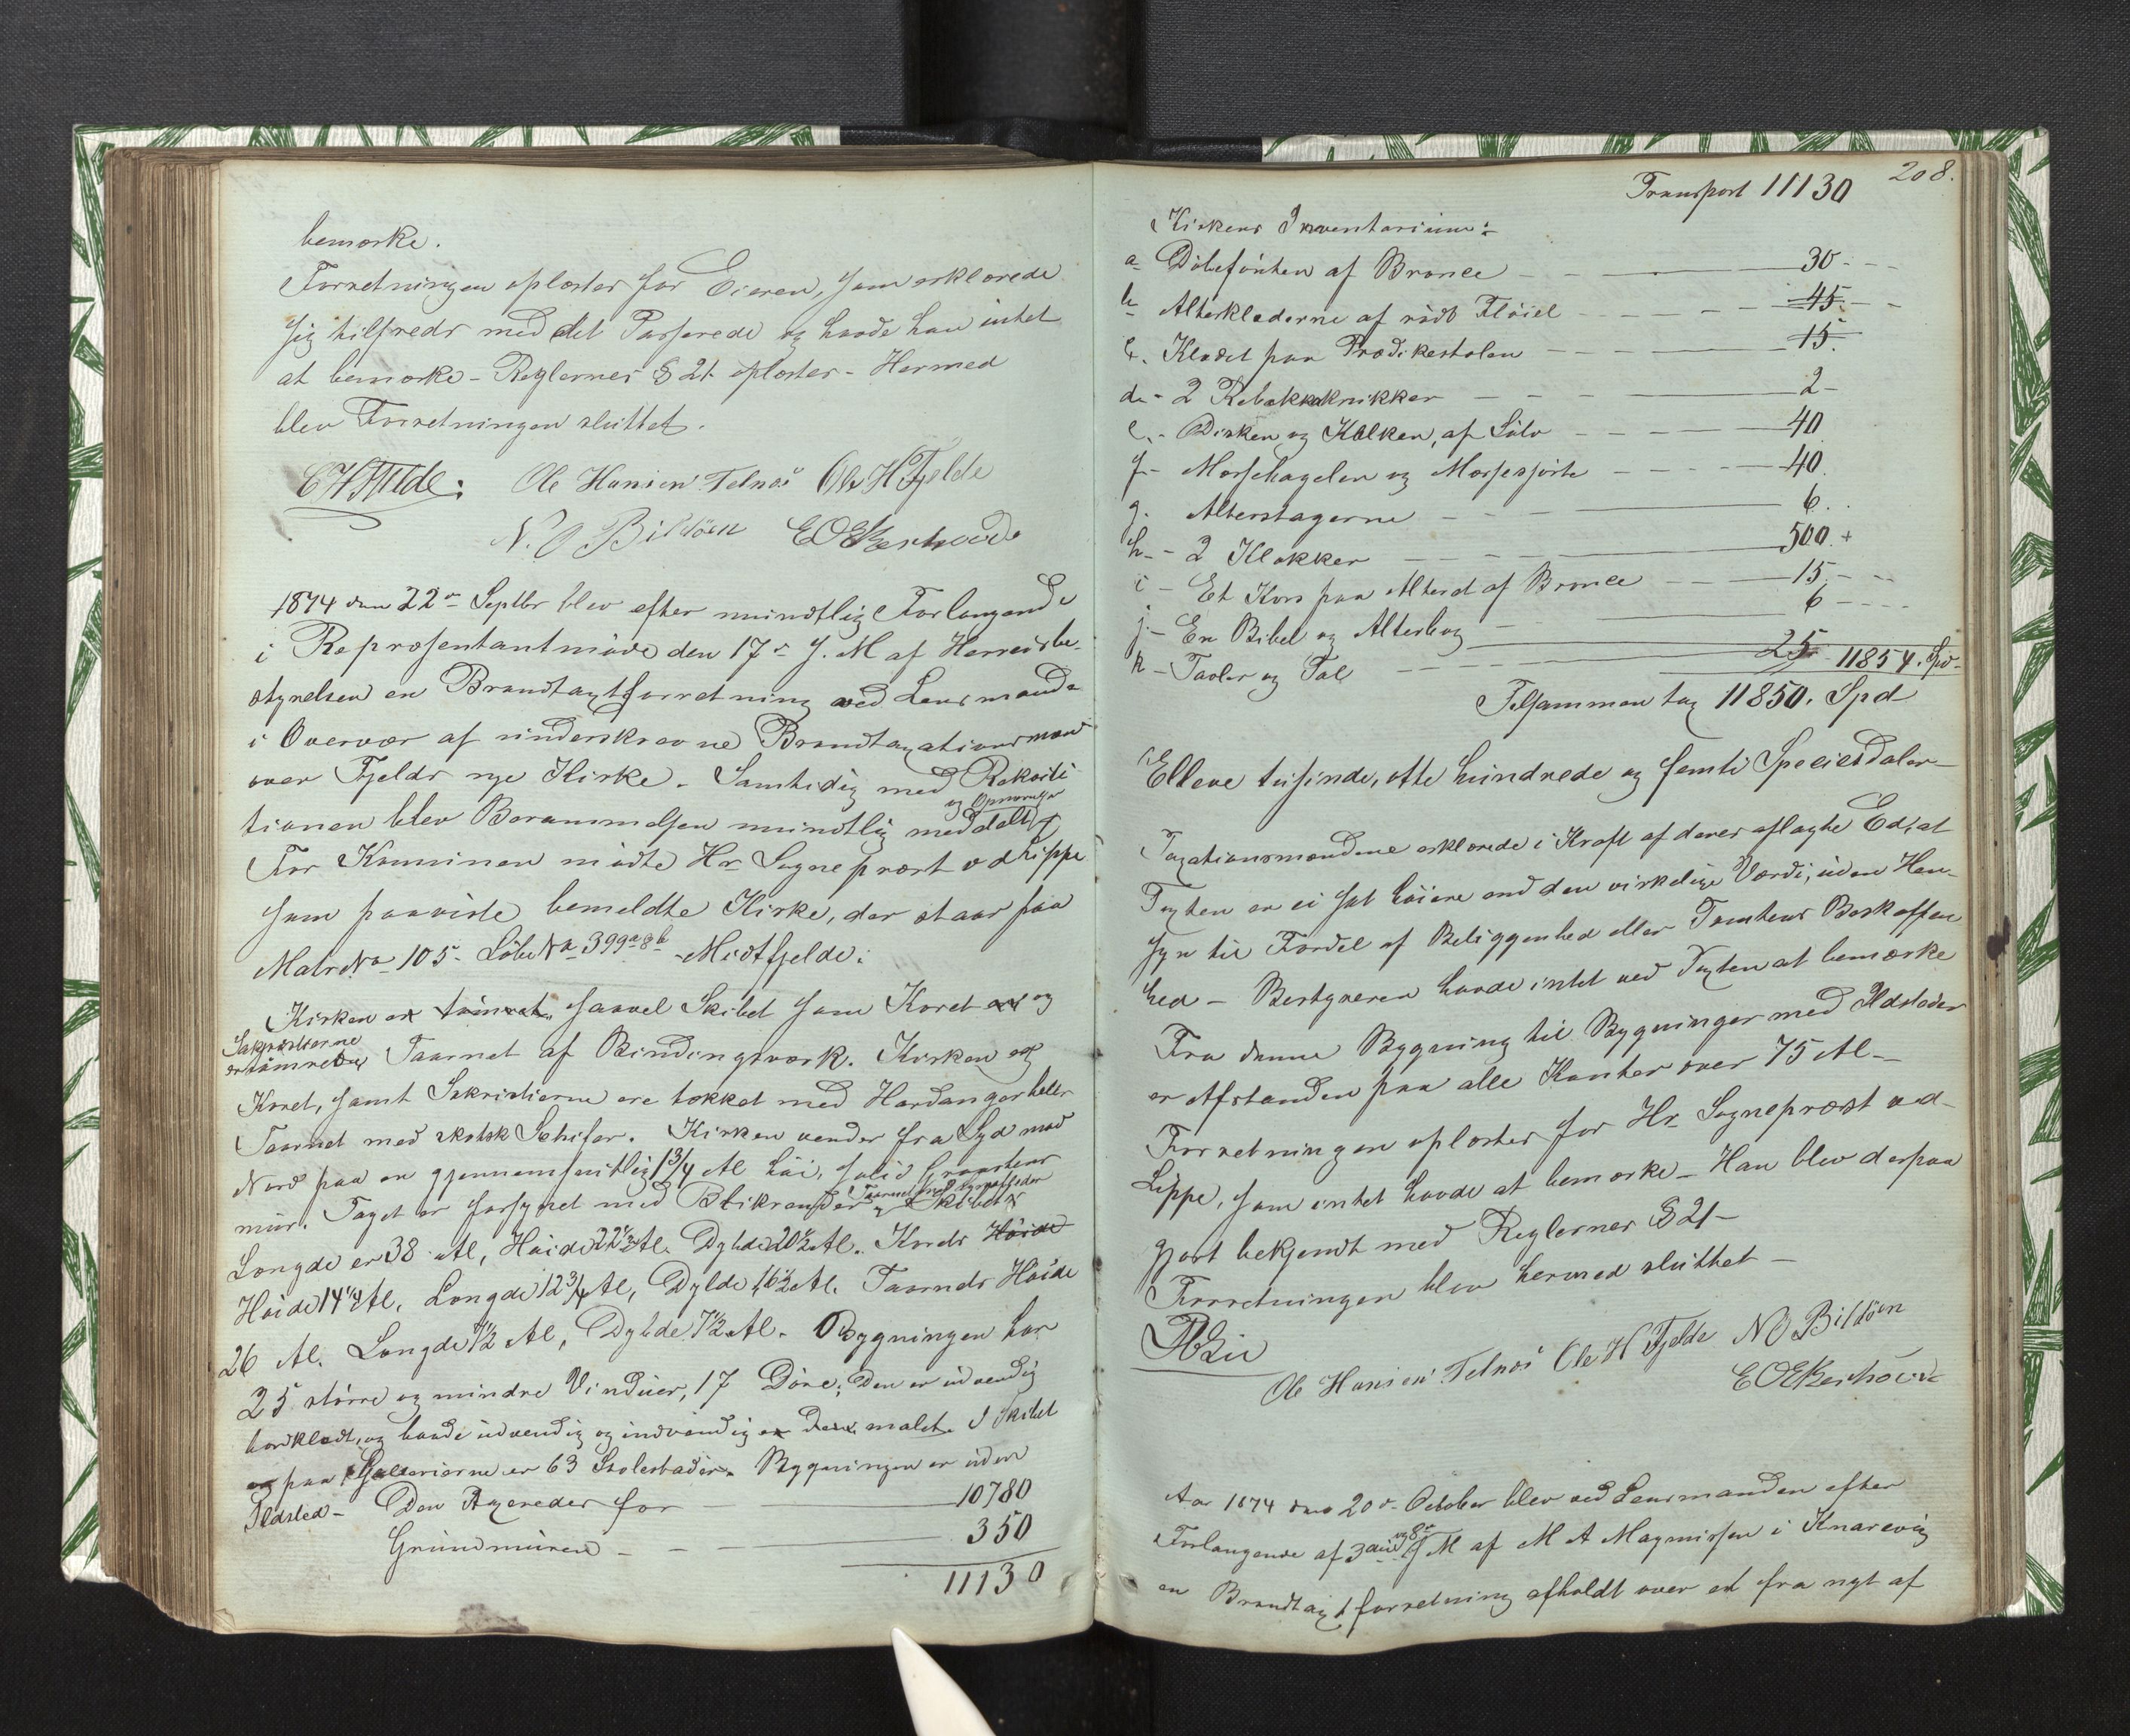 bemærke.
Forretningen oplæstes for Eieren, som erklærede
sig tilfreds med det Passerede og havde han intet
at bemærke - Reglernes § 21 oplæstes - Hermed
blev Forretningen sluttet.
Ole Hansen Telnæs Ole H Fjelde
N. O Bildöen E O Ekerhovd
1874 den 22de Septbr blev efter mundtlig Forlangende
i Repræsentantmöde den 17de d. M af Herredsbe-
styrelsen en Brandtaxtforretning ved Lensmanden
i Overvær af underskrevne Brandtaxationsmænd
over Fjelds nye Kirke. Samtidig med Rekvisi-
og Opnævnelse
tionen blev Berammelsen mundtlig meddelt
For Kommunen mödte Hr Sognepræst v d Lippe
som paaviste bemeldte Kirke, der staar paa
Matr No 105 - Löbe No 399a & b Midtfjelde:
Kirken er tömret, saavel Skibet som Koret og
Sakristierne
er tömrede Taarnet af Bindingsværk. Kirken og
Koret, samt Sakristierne ere tækket med Hardangerheller
Taarnet med skotsk Schifer. Kirken vender fra Syd mod
Nord paa en gjennemsnitlig 1 3/4 Al höi, solid Graastens
mur. Taget er forsynet med Blikrender Skibets
Længde er 38 Al, Höide 22 1/2 Al. Dybde 20 1/2 Al. Korets Höide
Höide 14 1/4 Al, Længde 12 3/4 Al, Dybde 16 1/2 Al. Taarnets Höide
26 Al. Længde 7 1/2 Al, Dybde 7 1/2 Al. Bygningen har
25 större og mindre Vinduer, 17 Döre; Den er udvendig
bordklædt, og baade udvendig og indvendig er den malet. I Skibet
og paa Gallerierne er 63 Stolestader. Bygningen er uden
Ildsted - Den Taxeredes for 10780
Grundmuren 350
11130
208.
Transport 11130
Kirkens Inventarium:
a Döbefonten af Bronce 30
b Alterklæderne af rödt Flöiel 45
c. Klædet paa Prædikestolen 15
d - 2 Rebekkakrukker 2
e. - Disken og Kalken, af Sölv 40
f - Messehagelen og Messeskjorte 40
g. Alterstagerne 6
h - 2 Klokker 500
i - Et Kors paa Alteret af Bronce 15
j. - En Bibel og Alterbog 6
k - Tavler og Tal 25 11854. Spd
Tilsammen tax 11850. Spd
Elleve tusinde, otte hundrede og femti Speciesdaler
Taxationsmændene erklærede i Kraft af deres aflagte Ed, at
Taxten er ei sat höiere end den virkelige Værdi, uden Hen-
syn til Fordel af Beliggenhed eller Tomtens Beskaffen
hed - Bestyreren havde intet ved Taxten at bemærke
Fra denne Bygning til Bygninger med Ildsteder
er Afstanden paa alle Kanter over 75 Al
Forretningen oplæstes for Hr Sognepræst v d
Lippe, som intet havde at bemærke - Han blev derpaa
gjort bekjendt med Reglernes § 21 -
Forretningen blev hermed sluttet -
Ole Hansen Telnæs Ole H Fjelde N O Bildöen
E O Ekerhovd
Aar 1874 den 20de October blev ved Lensmanden efter
og 8de
Forlangende af 3die d M af M A Magnussen i Knarevig
en Brandtaxtforretning afholdt over et fra nyt af